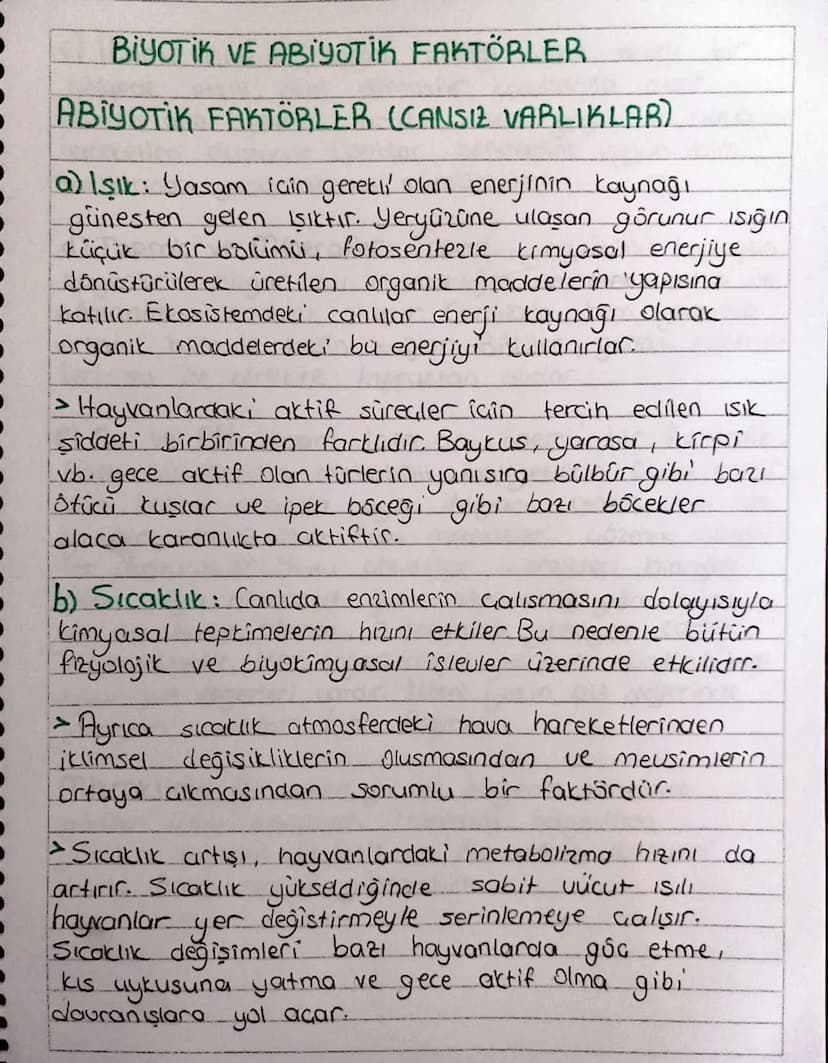 BİYOTİK VE ABİYOTİK FAKTÖRLER
ABİYOTİK FAKTÖRLER (CANSIZ VARLIKLAR)
a) Işık: Yaşam için gerekli olan enerjinin kaynağı
güneşten gelen ışıktır. Yeryüzüne ulaşan görünür ışığın
küçük bir bölümü, fotosentezle kimyasal enerjiye
dönüştürülerek üretilen organik maddelerin yapısına
katılır. Ekosistemdeki canlılar enerji kaynağı olarak
organik maddelerdeki bu enerjiyi kullanırlar.
> Hayvanlardaki aktif süreçler için tercih edilen ışık
şiddeti birbirinden farklıdır. Baykuş, yarasa, kirpi
vb. gece aktif olan türlerin yanısıra bülbür gibi bazı
ötücü kuşlar ve ipek böceği gibi bazı böcekler
alaca karanlıkta aktiftir.
b) Sıcaklık: Canlıda enzimlerin çalışmasını dolayısıyla
kimyasal tepkimelerin hızını etkiler Bu nedenle bütün
fizyolojik ve biyokimyasal işlevler üzerinde etkilidir.
> Ayrıca sıcaklık atmosferdeki hava hareketlerinden
iklimsel değişikliklerin oluşmasından ve mevsimlerin
ortaya çıkmasından sorumlu bir faktördür.
> Sıcaklık artışı, hayvanlardaki metabolizma hızını da
artırır. Sıcaklık yükseldiğinde sabit vücut ısılı
hayvanlar yer değiştirmeyle serinlemeye çalışır.
Sıcaklık değişimleri bazı hayvanlarda göç etme,
kış uykusuna yatma ve gece aktif olma gibi
davranışlara yol açar.